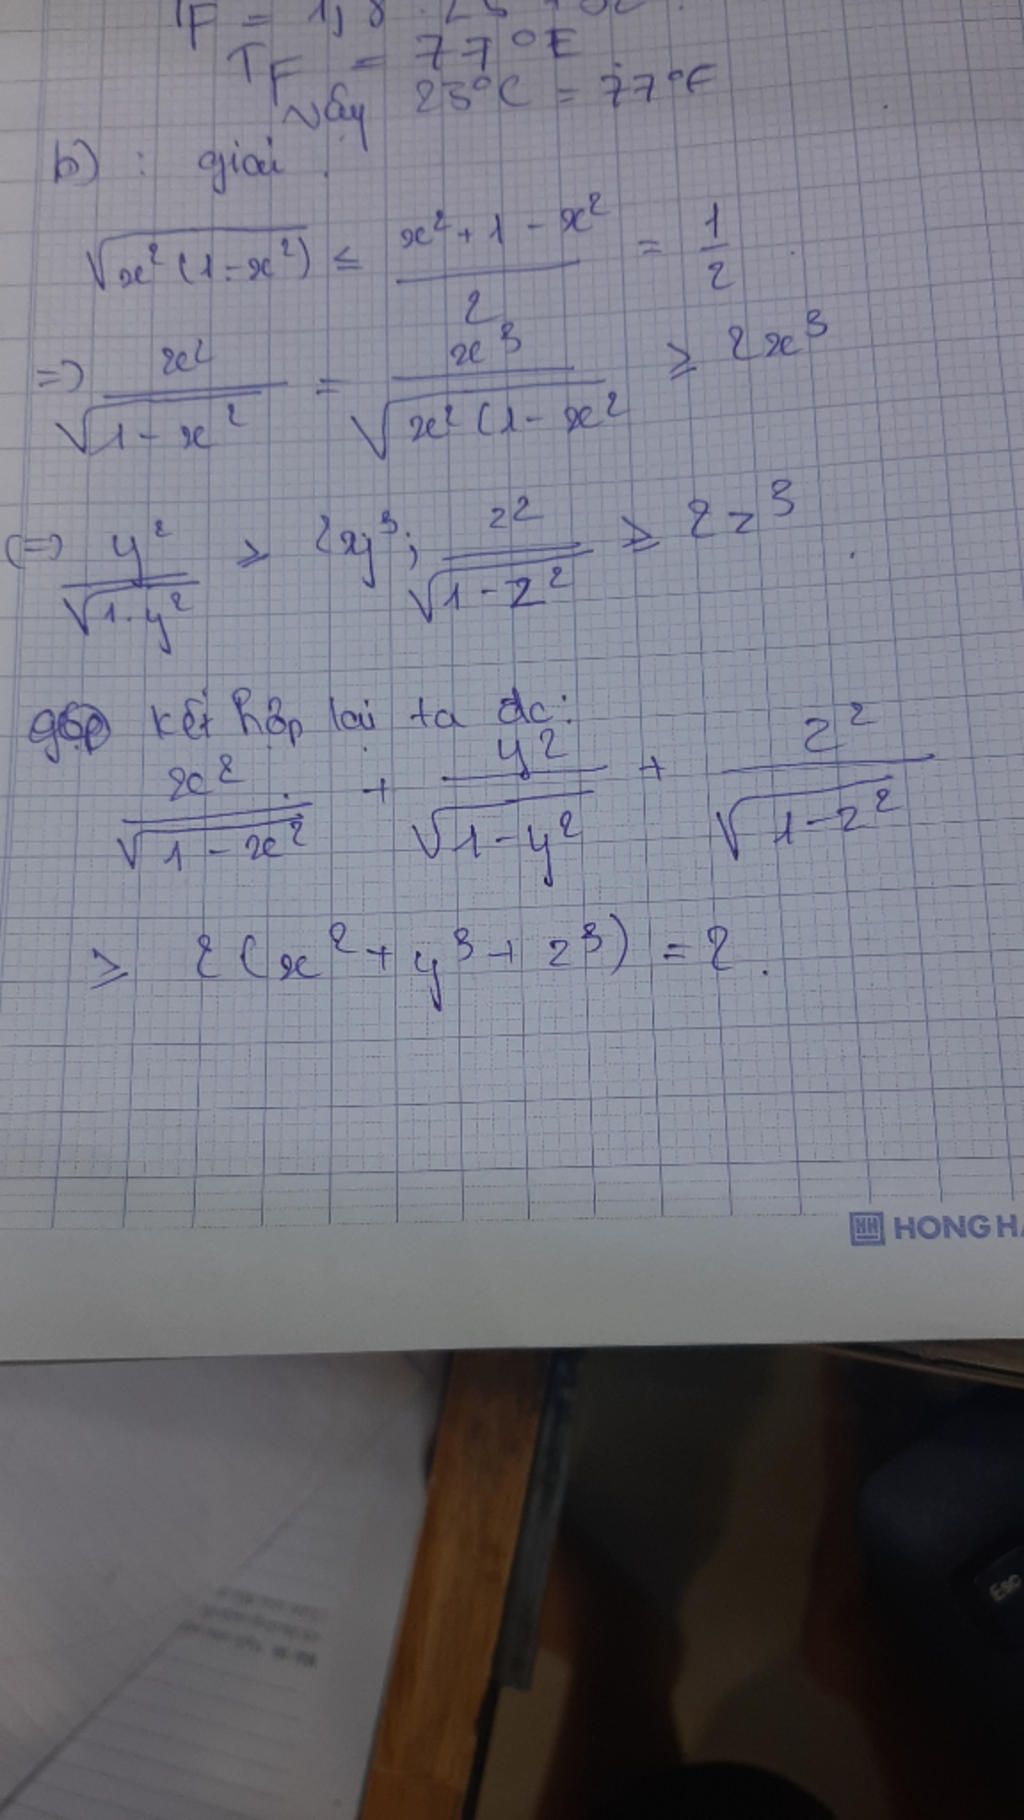 T_F = 1,8 . 25 + 32
T_F = 77°F
Vậy 25°C = 77°F
b) : giải .
√(x²(1-x²)) ≤ (x²+1-x²)/2 = 1/2 .
=> x²/√(1-x²) = x³/√(x²(1-x²) ≥ 2x³
(=) y²/√(1-y²) ≥ 2y³; z²/√(1-z²) ≥ 2z³ .
kết hợp lại ta dc:
x²/√(1-x²) + y²/√(1-y²) + z²/√(1-z²)
≥ 2(x²+y³+z³) = 2 .
HH HONG HA
Esc